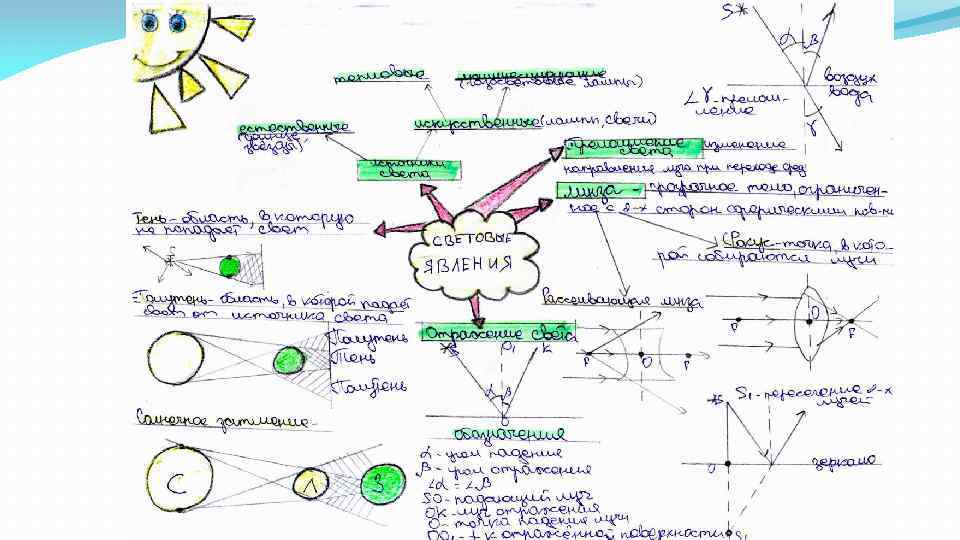 тепловые
люминесцирующие
(газосветовые лампы)
естественные
(солнце,
звёзды)
искусственные (лампы, свечи)
источники
света
S
α β
воздух
вода
∠γ - прелом-
ление
γ
Преломление
света
изменение
направления луча при переходе сред
линза - прозрачное тело, ограничен-
ное с 2-х сторон сферическими пов-ми
Фокус - точка, в кото-
рой собираются лучи
СВЕТОВЫЕ
ЯВЛЕНИЯ
Тень - область, в которую
не попадает свет
Полутень - область, в которой падает
свет от источника света
Полутень
Тень
Полутень
Солнечное затмение
С Л З
Отражение света
S O₁ K
α β
O
обозначения
α - угол падения
β - угол отражения
∠α = ∠β
SO - падающий луч
OK - луч отражения
O - точка падения луча
OO₁ - ⊥ к отражённой поверхности
Рассеивающая линза
F O F
F O F
S
S₁ - пересечение 2-х
лучей
O
зеркало
S₁